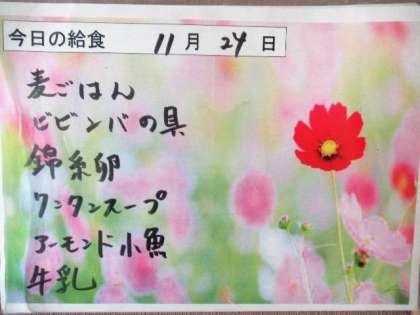 今日の給食 11月24日
麦ごはん
ビビンバの具
錦糸卵
ワンタンスープ
アーモンド小魚
牛乳